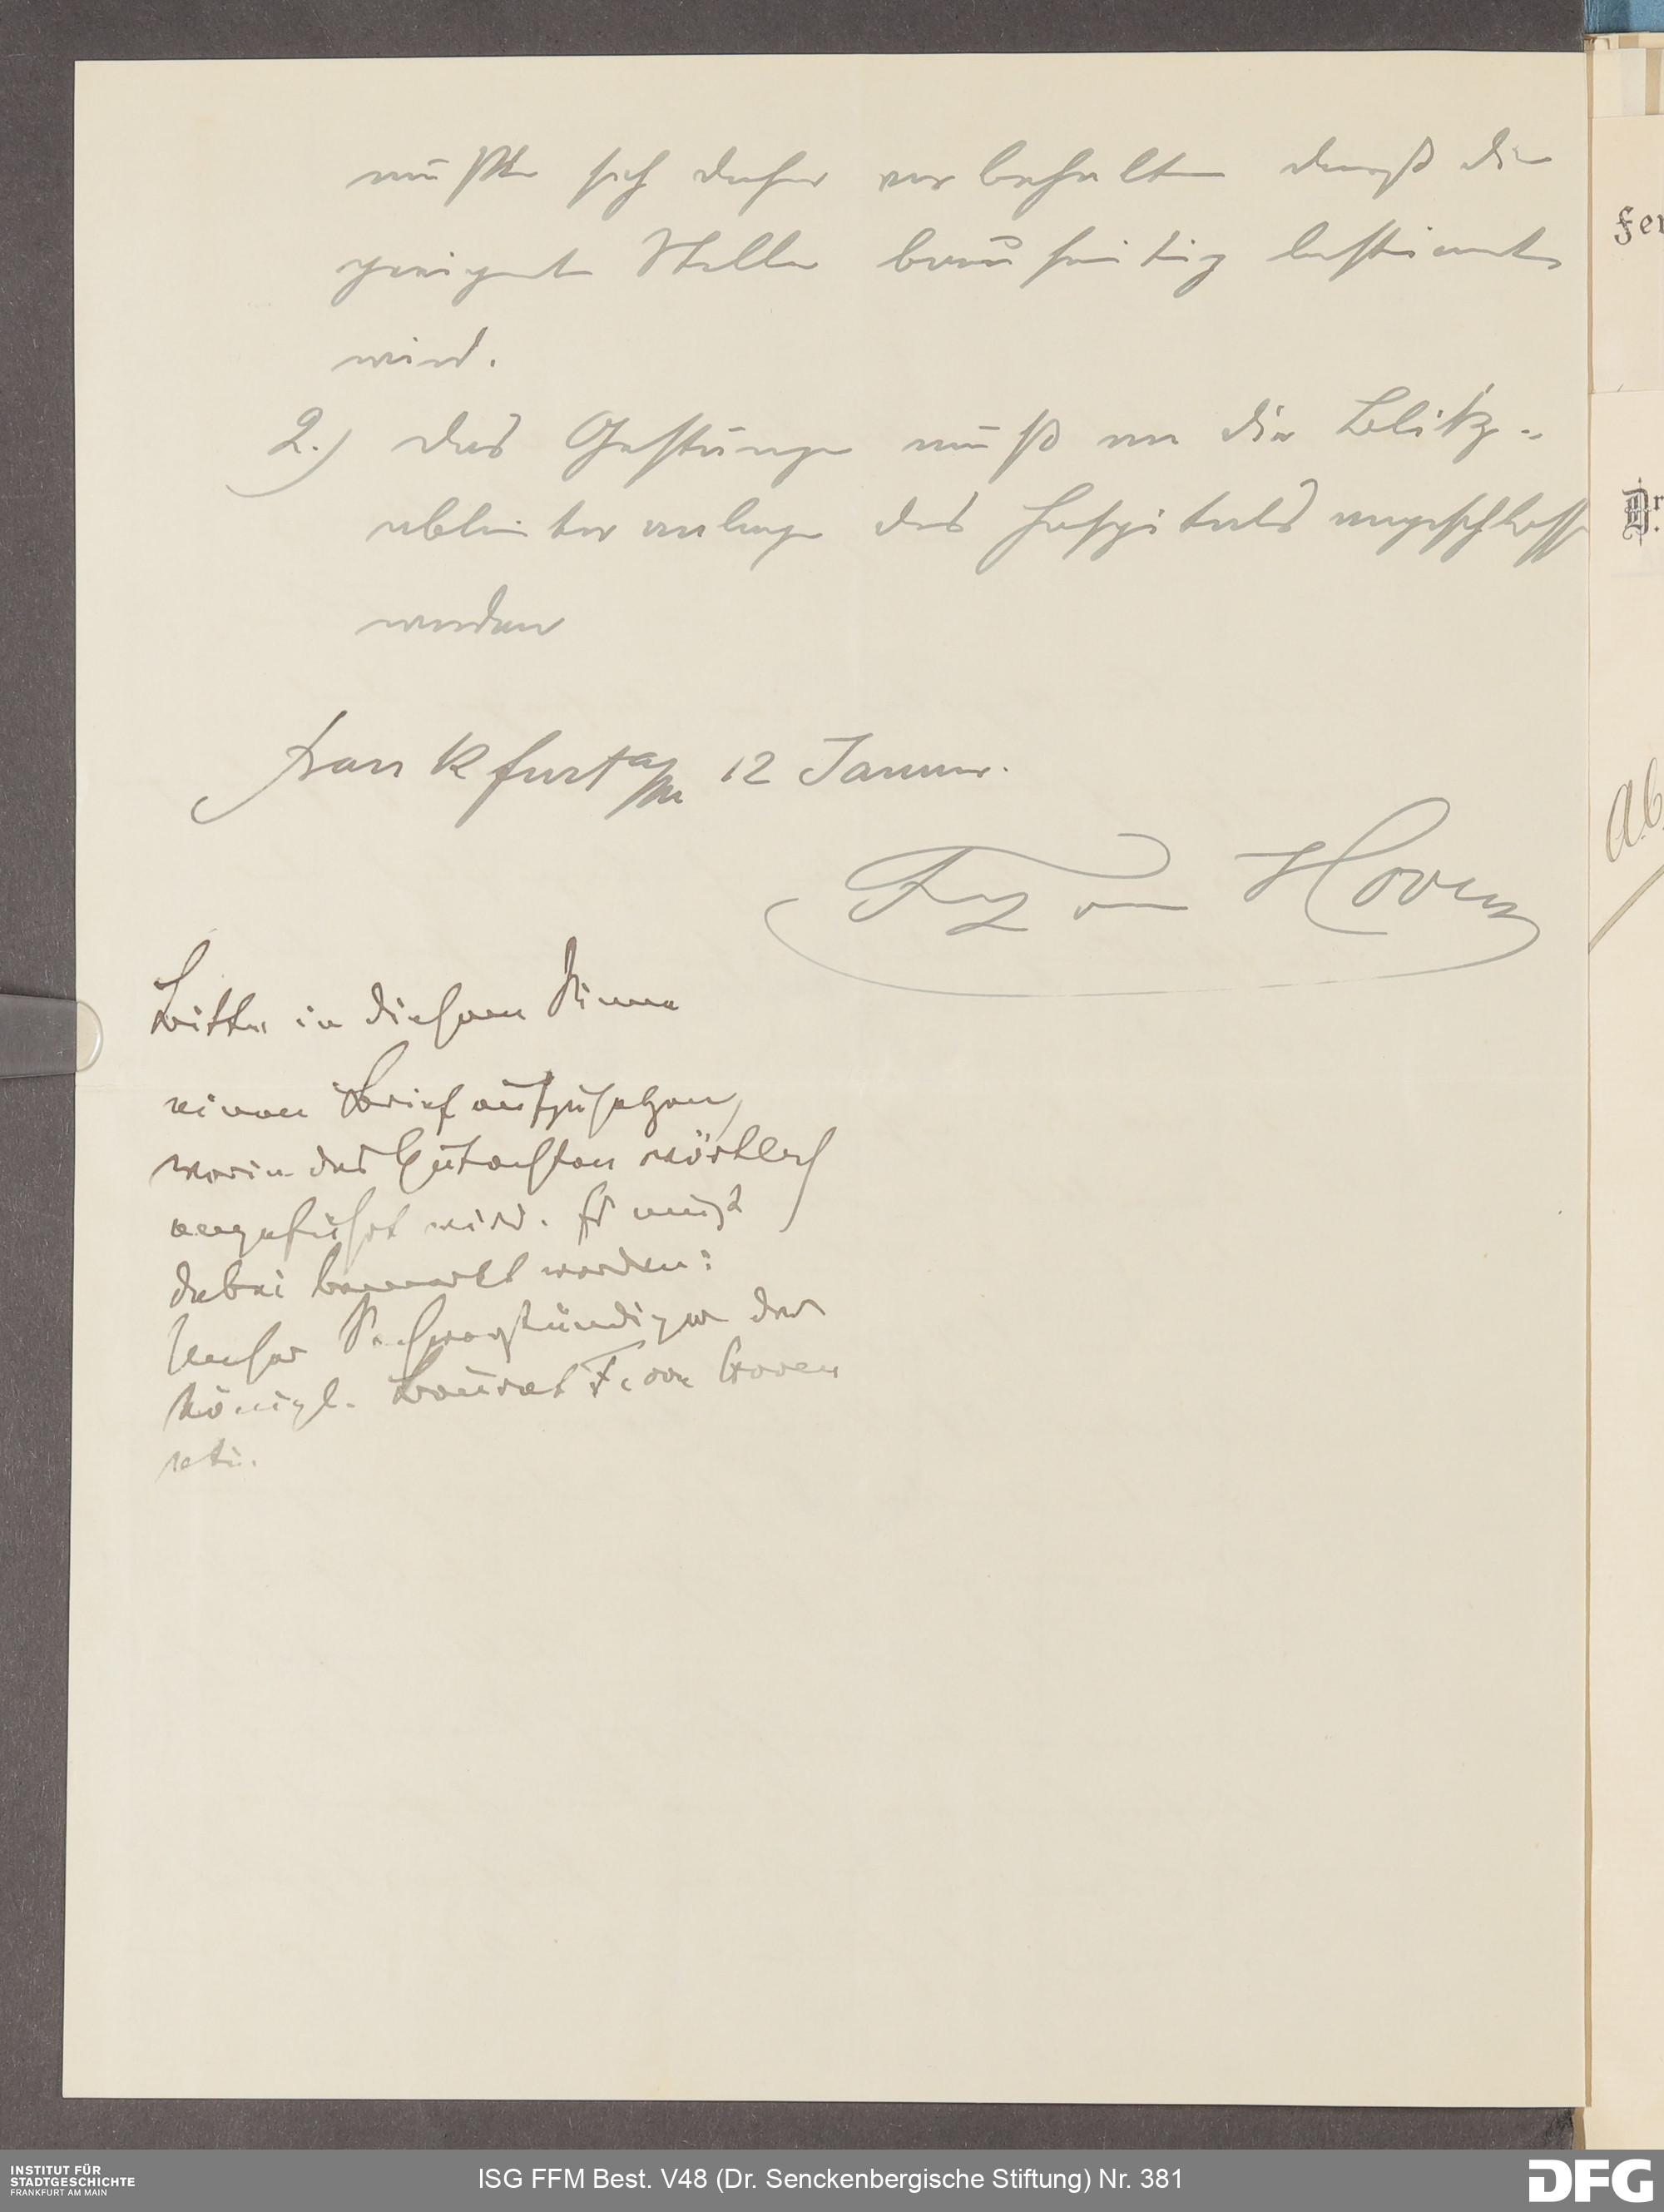 müßte sich daher vorbehalten daß die
geeignete Stelle bauseitig bestimmt
wird.
2.) das Gestänge muß an die Blitz-
ableiteranlage des Hospitals angeschlossen
werden
Frankfurt a/M 12 Januar.
Frz von Hoven
Bitte in diesem Sinne
einen Brief aufzusetzen,
worin das Gutachten wörtlich
angeführt wird. Es muß
dabei bemerkt werden:
Unser Sachverständiger der
königl. Baurat F. von Hoven
etc.
Fer
Dr.
Ab
INSTITUT FÜR
STADTGESCHICHTE
FRANKFURT AM MAIN
ISG FFM Best. V48 (Dr. Senckenbergische Stiftung) Nr. 381
DFG